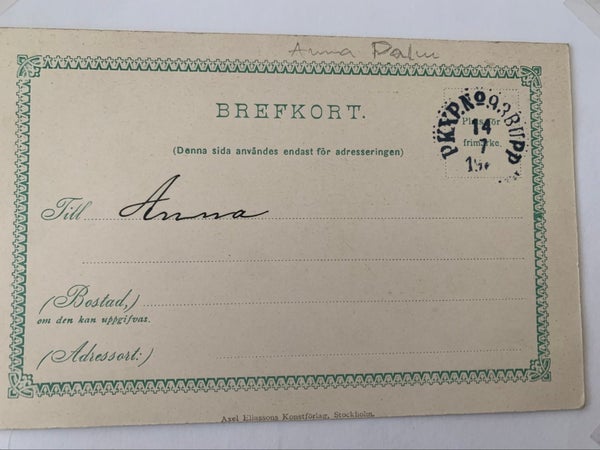 Anna Palm
BREFKORT.
(Denna sida användes endast för adresseringen)
Plats för
frimärke.
PKXP.No 93BUPP
14
7
Till Anna
(Bostad,)
om den kan uppgifvas.
(Adressort:)
Axel Eliassons Konstförlag, Stockholm.